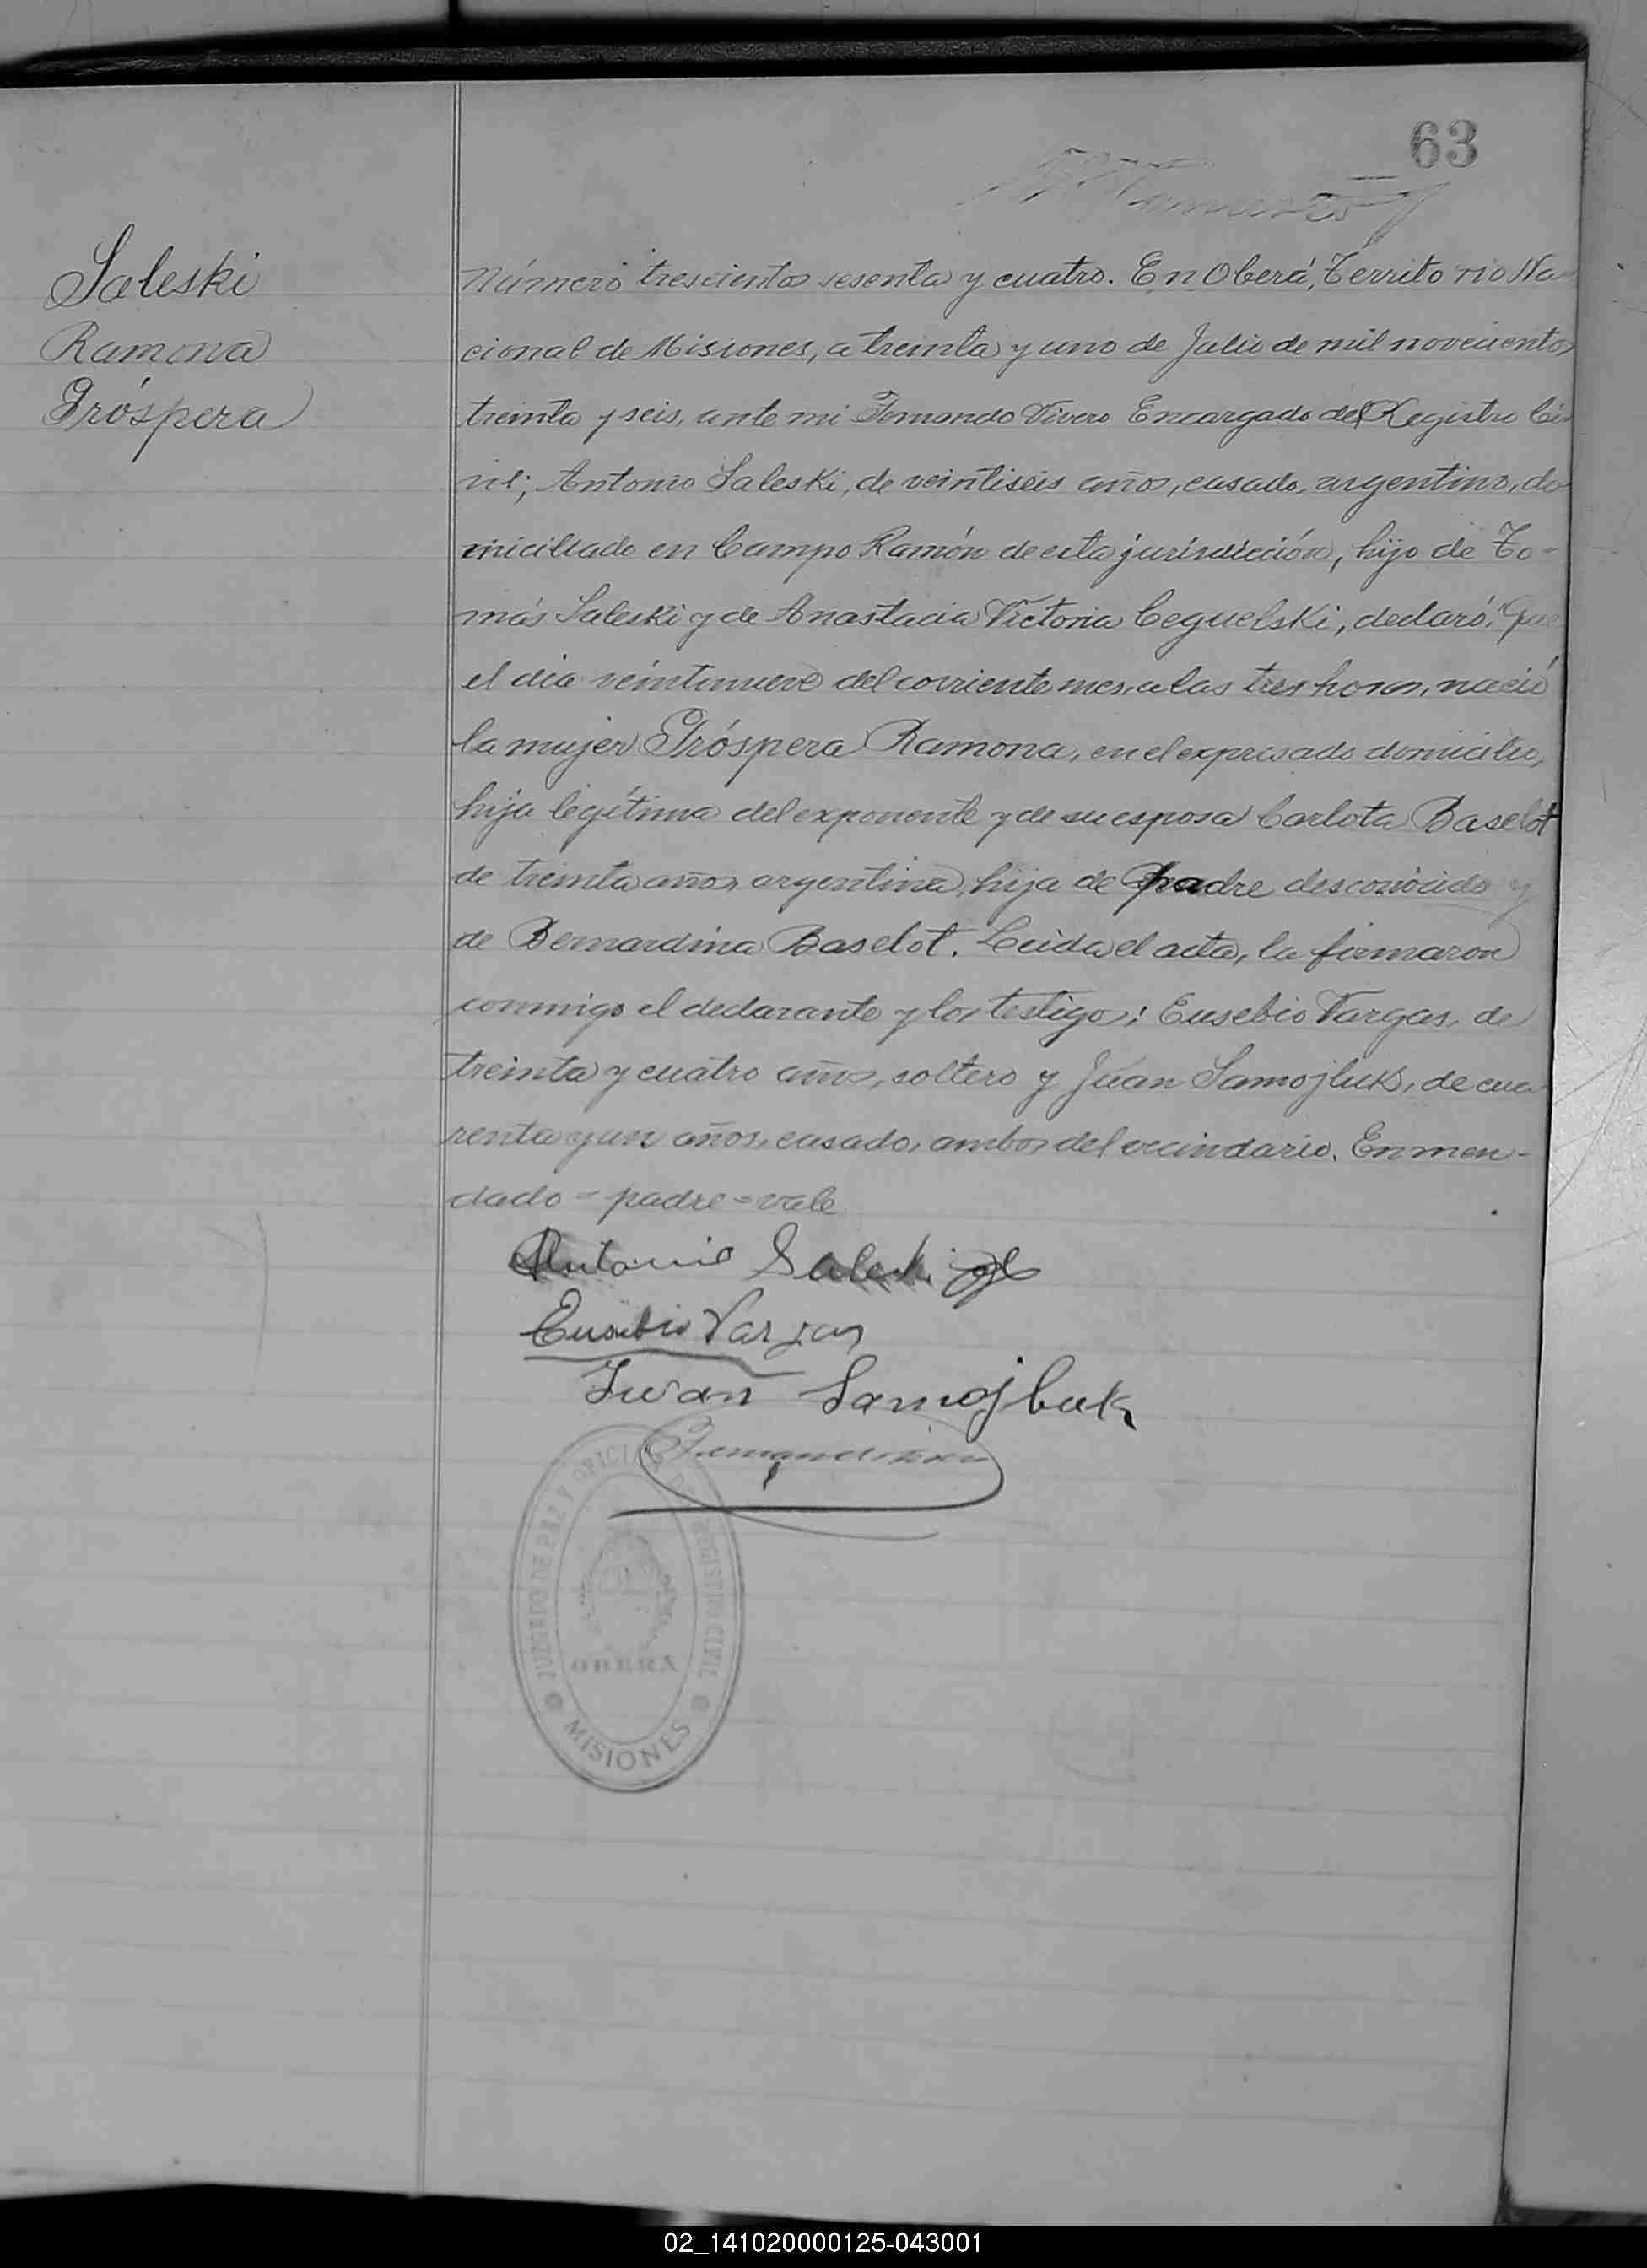 63
Saleski
Ramona
Próspera
Número trescientos sesenta y cuatro. En Oberá, Territorio Na-
cional de Misiones, a treinta y uno de Julio de mil novecientos
treinta y seis, ante mi Fernando Vivero Encargado del Registro Ci-
vil; Antonio Saleski, de veintiseis años, casado, argentino, do
miciliado en Campo Ramón de esta jurisdicción, hijo de To-
más Saleski y de Anastacia Victoria Ceguelski, declaró: Que
el dia veintinueve del corriente mes, a las tres horas, nació
la mujer Próspera Ramona, en el expresado domicilio,
hija legítima del exponente y de su esposa Carlota Baselot
de treinta años, argentina, hija de padre desconocido y
de Bernardina Baselot. Leida el acta, la firmaron
conmigo el declarante y los testigos: Eusebio Vargas, de
treinta y cuatro años, soltero y Juan Samojluk, de cua
renta y un años, casado, ambos del vecindario. Enmen-
dado = padre = vale
Antonio Saleski
Eusebio Vargas
Iwan Samojluk
JUZGADO DE PAZ Y OFICINA REGISTRO CIVIL
OBERÁ
MISIONES
02_141020000125-043001